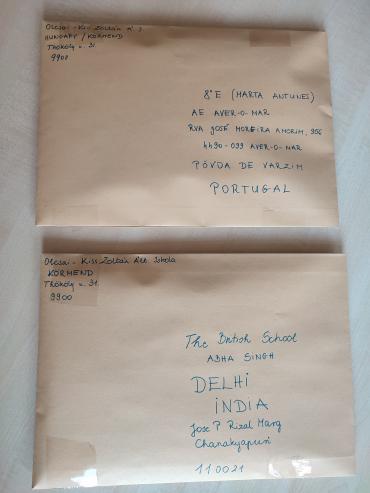 Olcsai - Kiss Zoltán Á. I.
HUNGARY / KÖRMEND
Thököly u. 31.
9900
8°E (MARTA ANTUNES)
AE AVER-O-MAR
RUA JOSÉ MOREIRA AMORIM, 956
4490-099 AVER-O-MAR
PÓVOA DE VARZIM
PORTUGAL
Olcsai - Kiss Zoltán Ált. Iskola
KÖRMEND
Thököly u. 31.
9900
The British School
ABHA SINGH
DELHI
INDIA
Jose P Rizal Marg
Chanakyapuri
110021